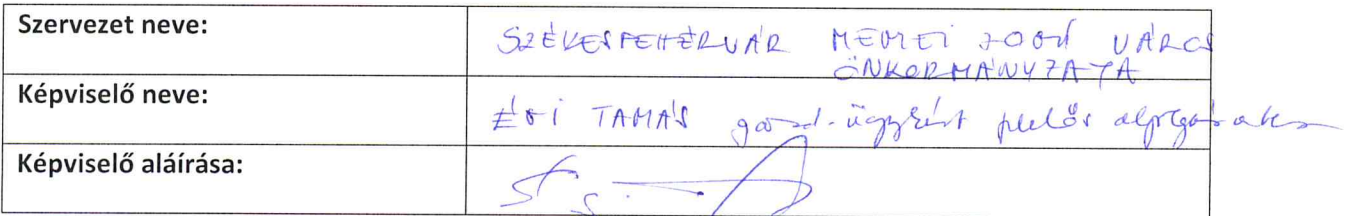 Szervezet neve:
SZÉKESFEHÉRVÁR MEGYEI JOGÚ VÁROS
ÖNKORMÁNYZATA
Képviselő neve:
ÉGI TAMÁS gazd. ügyekért felelős alpolgármester
Képviselő aláírása: